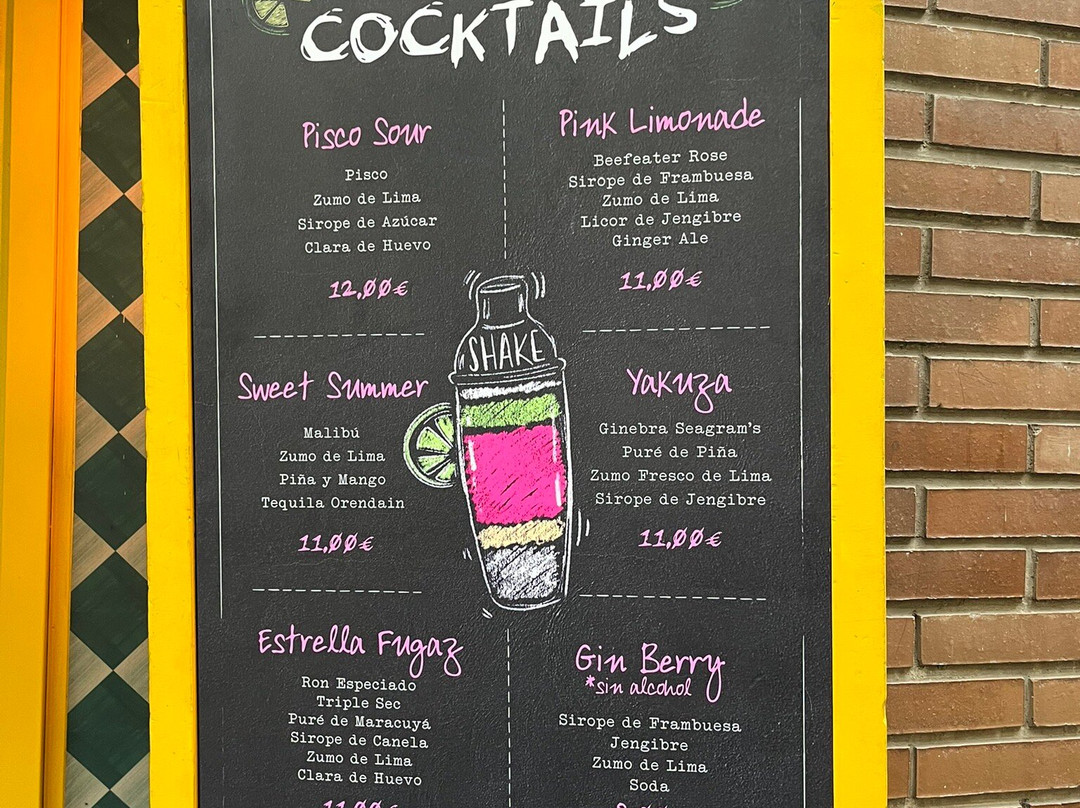 COCKTAILS
Pisco Sour
Pisco
Zumo de Lima
Sirope de Azúcar
Clara de Huevo
12,00€
Pink Limonade
Beefeater Rose
Sirope de Frambuesa
Zumo de Lima
Licor de Jengibre
Ginger Ale
11,00€
SHAKE
Sweet Summer
Malibú
Zumo de Lima
Piña y Mango
Tequila Orendain
11,00€
Yakuza
Ginebra Seagram's
Puré de Piña
Zumo Fresco de Lima
Sirope de Jengibre
11,00€
Estrella Fugaz
Ron Especiado
Triple Sec
Puré de Maracuyá
Sirope de Canela
Zumo de Lima
Clara de Huevo
11,00€
Gin Berry
*sin alcohol
Sirope de Frambuesa
Jengibre
Zumo de Lima
Soda